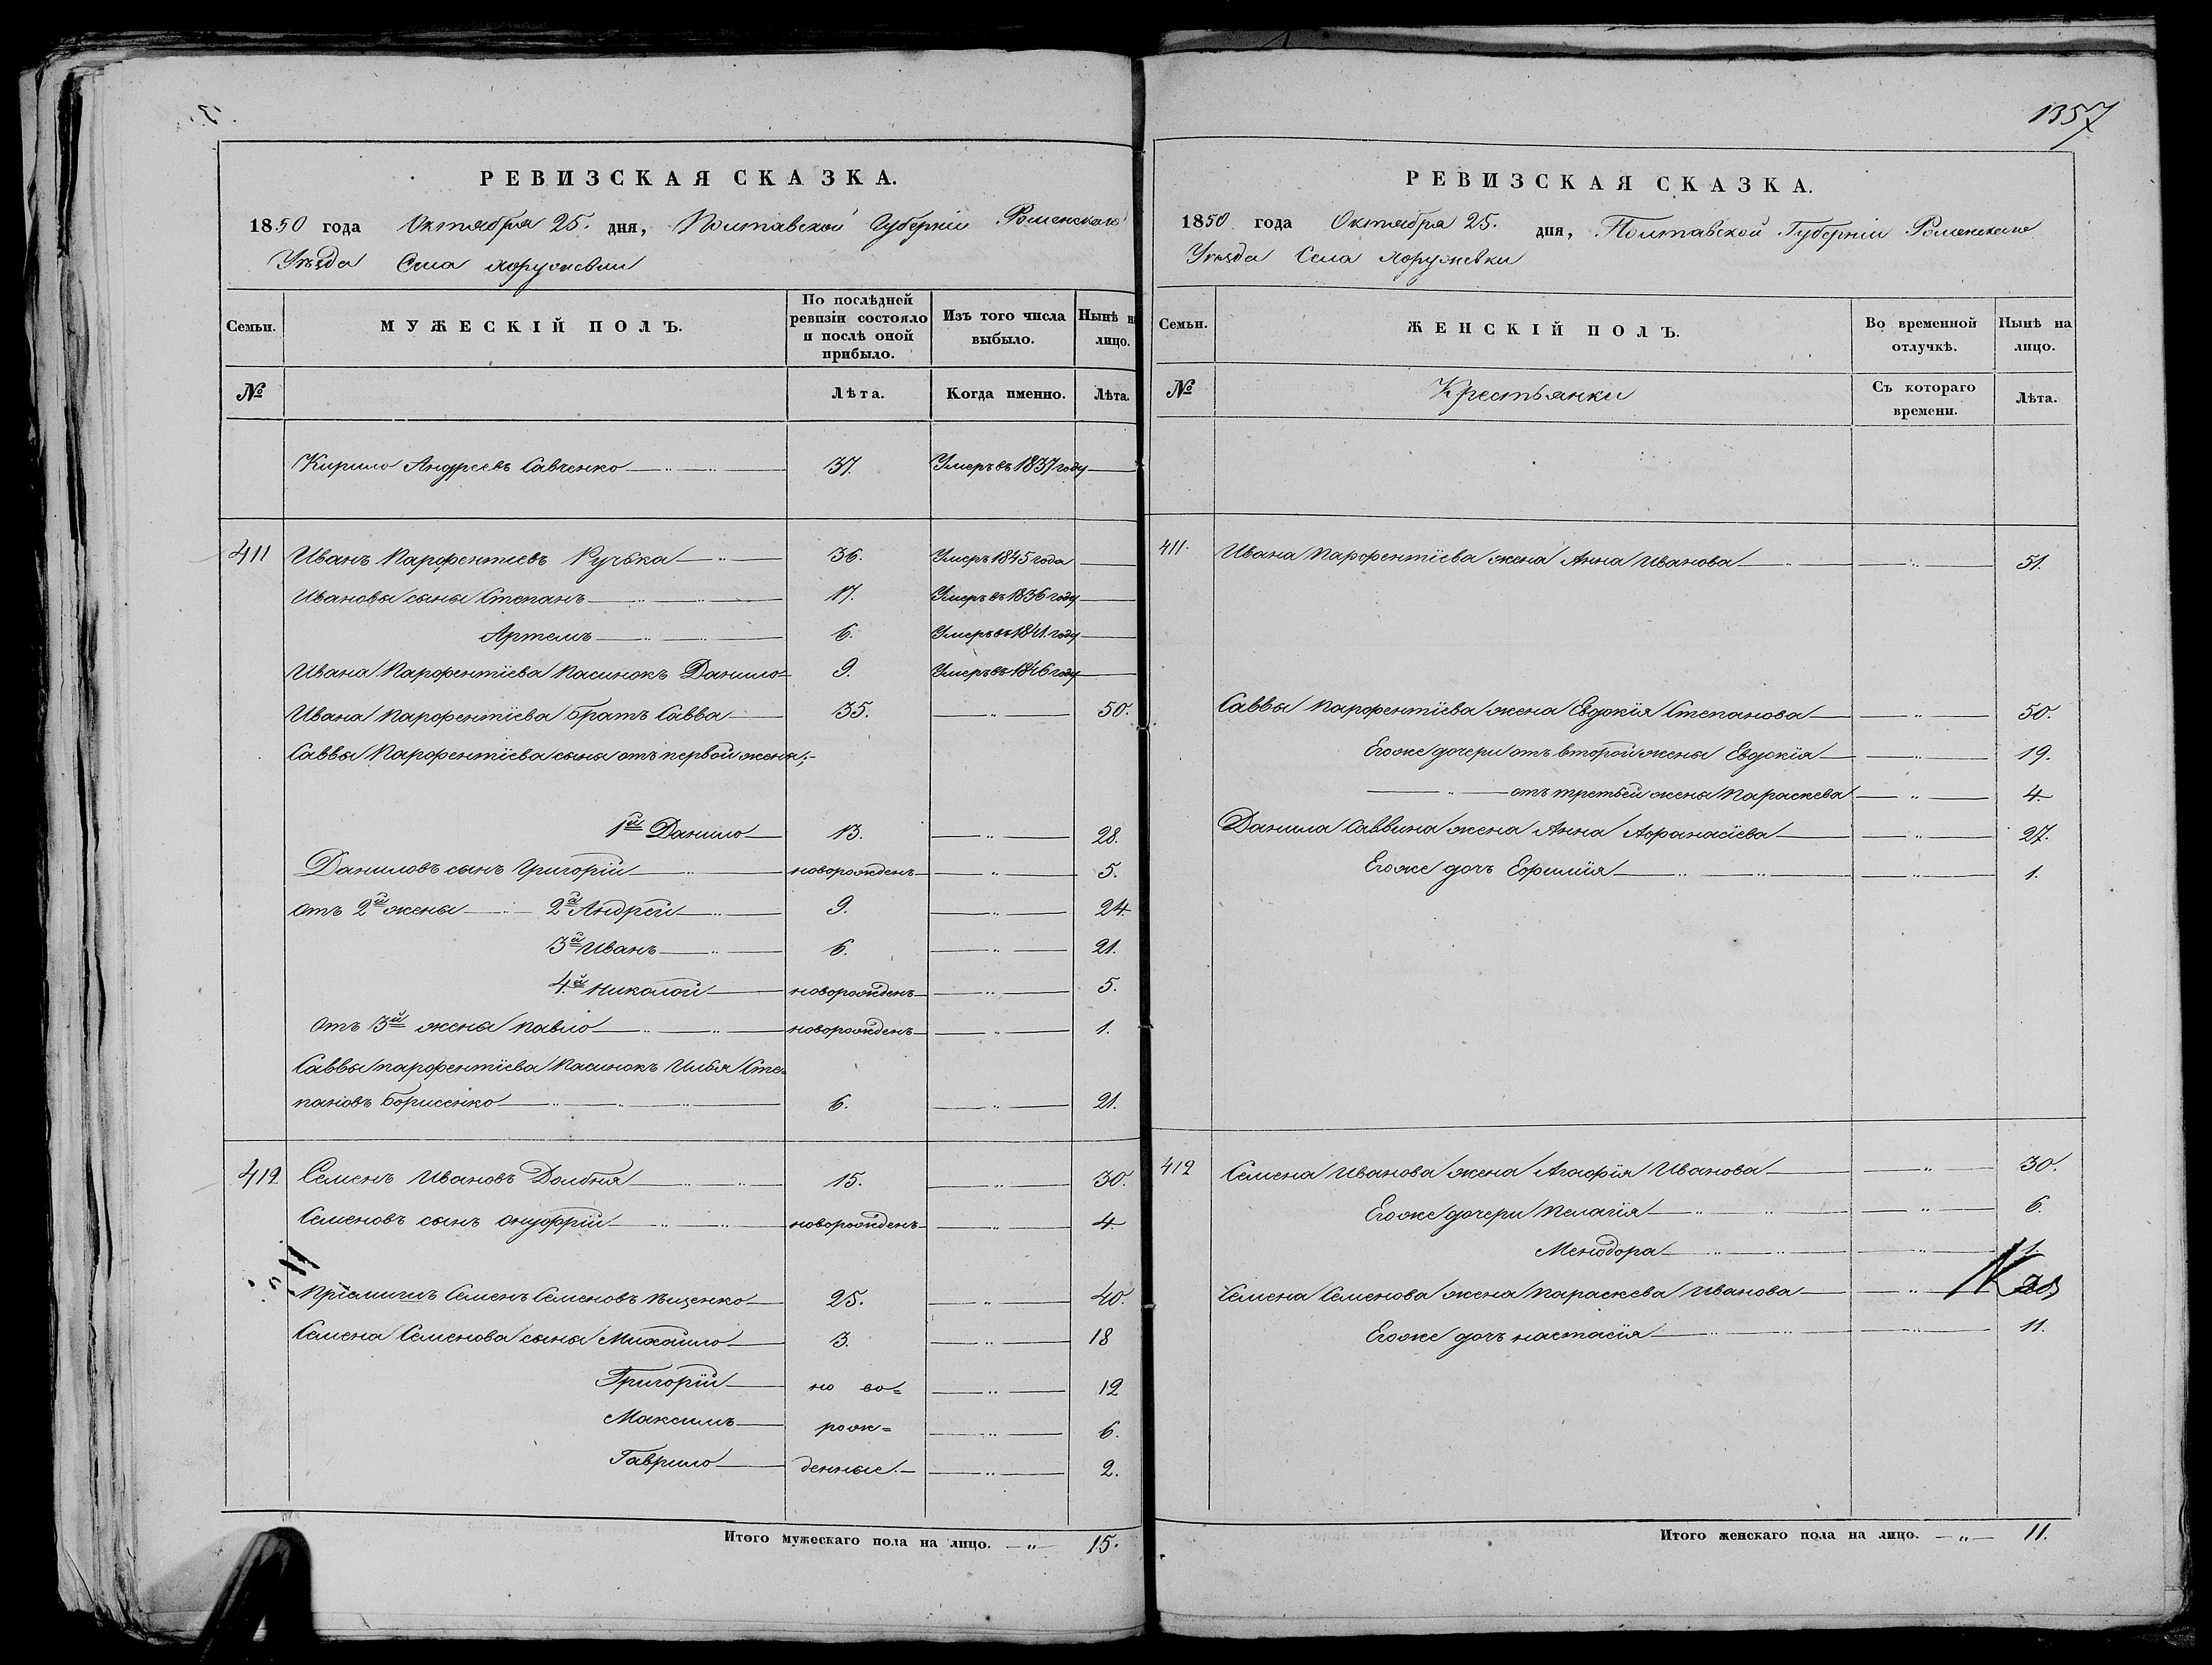 РЕВИЗСКАЯ СКАЗКА.
1850 года Октября 25. дня, Полтавской Губерніи Роменскаго
Уѣзда Села Хоружевки
Семьи.
МУЖЕСКІЙ ПОЛЪ.
По послѣдней ревизіи состояло и послѣ оной прибыло.
Изъ того числа выбыло.
Нынѣ на лицо.
№
Лѣта.
Когда именно.
Лѣта.
Кирило Андреевъ Савченко 37. Умеръ въ 1837 году
411 Иванъ Парфентиевъ Ручька 36. Умеръ 1845 года
Ивановы сыны Степанъ 17. Умеръ въ 1836 году
Артемъ 6. Умеръ въ 1841. году
Ивана Парфентіева Пасинокъ Данило 9. Умеръ въ 1846 году
Ивана Парфентіева братъ Савва 35. 50.
Саввы Парфентіева сыны отъ первой жены;
1й Данило 13. 28.
Даниловъ сынъ Григорій новорожденъ 5.
отъ 2й жены 2й Андрей 9. 24.
3й Иванъ 6. 21.
4й Николой новорожденъ 5.
отъ 3й жены Павло новорожденъ 1.
Саввы Парфентіева Пасинокъ Илья Сте=
пановъ Борисенко 6. 21.
412 Семенъ Ивановъ Долбня 15. 30.
Семеновъ сынъ Онуфрій новорожденъ 4.
Пріемишъ Семенъ Семеновъ Ищенко 25. 40.
Семена Семенова сыны Михайло 3. 18
Григорій но во= 12
Максимъ рож= 6.
Гаврило денные. 2.
Итого мужескаго пола на лицо. 15.
1357
РЕВИЗСКАЯ СКАЗКА.
1850 года Октября 25. дня, Полтавской Губерніи Роменскаго
Уѣзда Села Хоружевки
Семьи.
ЖЕНСКІЙ ПОЛЪ.
Во временной отлучкѣ.
Нынѣ на лицо.
№
Крестьянки
Съ котораго времени.
Лѣта.
411. Ивана Парфентіева жена Анна Иванова 51.
Саввы Парфентіева жена Евдокія Степанова 50.
Егоже дочери отъ второй жены Евдокія 19.
отъ третьей жены Параскева 4.
Данила Саввина жена Анна Афанасіева 27.
Егоже дочь Ефимія 1.
412 Семена Иванова жена Агафія Иванова 30.
Егоже дочери Пелагія 6.
Менодора 1.
Семена Семенова жена Параскева Иванова
Егоже дочь Настасія 11.
Итого женскаго пола на лицо. 11.